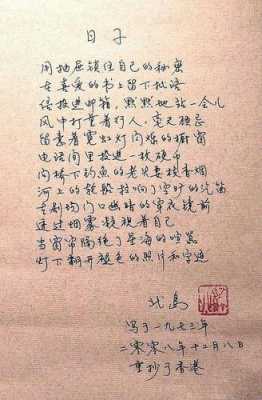 日子
用抽屉锁住自己的秘密
在喜爱的书上留下批语
信投进邮箱，默默地站一会儿
风中打量着行人，毫无顾忌
留意着霓虹灯闪烁的橱窗
电话间里投进一枚硬币
向桥下钓鱼的老头要支香烟
河上的轮船拉响了空旷的汽笛
在剧场门口幽暗的穿衣镜前
透过烟雾凝视着自己
当窗帘隔绝了星海的喧嚣
灯下翻开褪色的照片和字迹
北岛
写于一九七三年
二零零八年十二月八日
重抄于香港